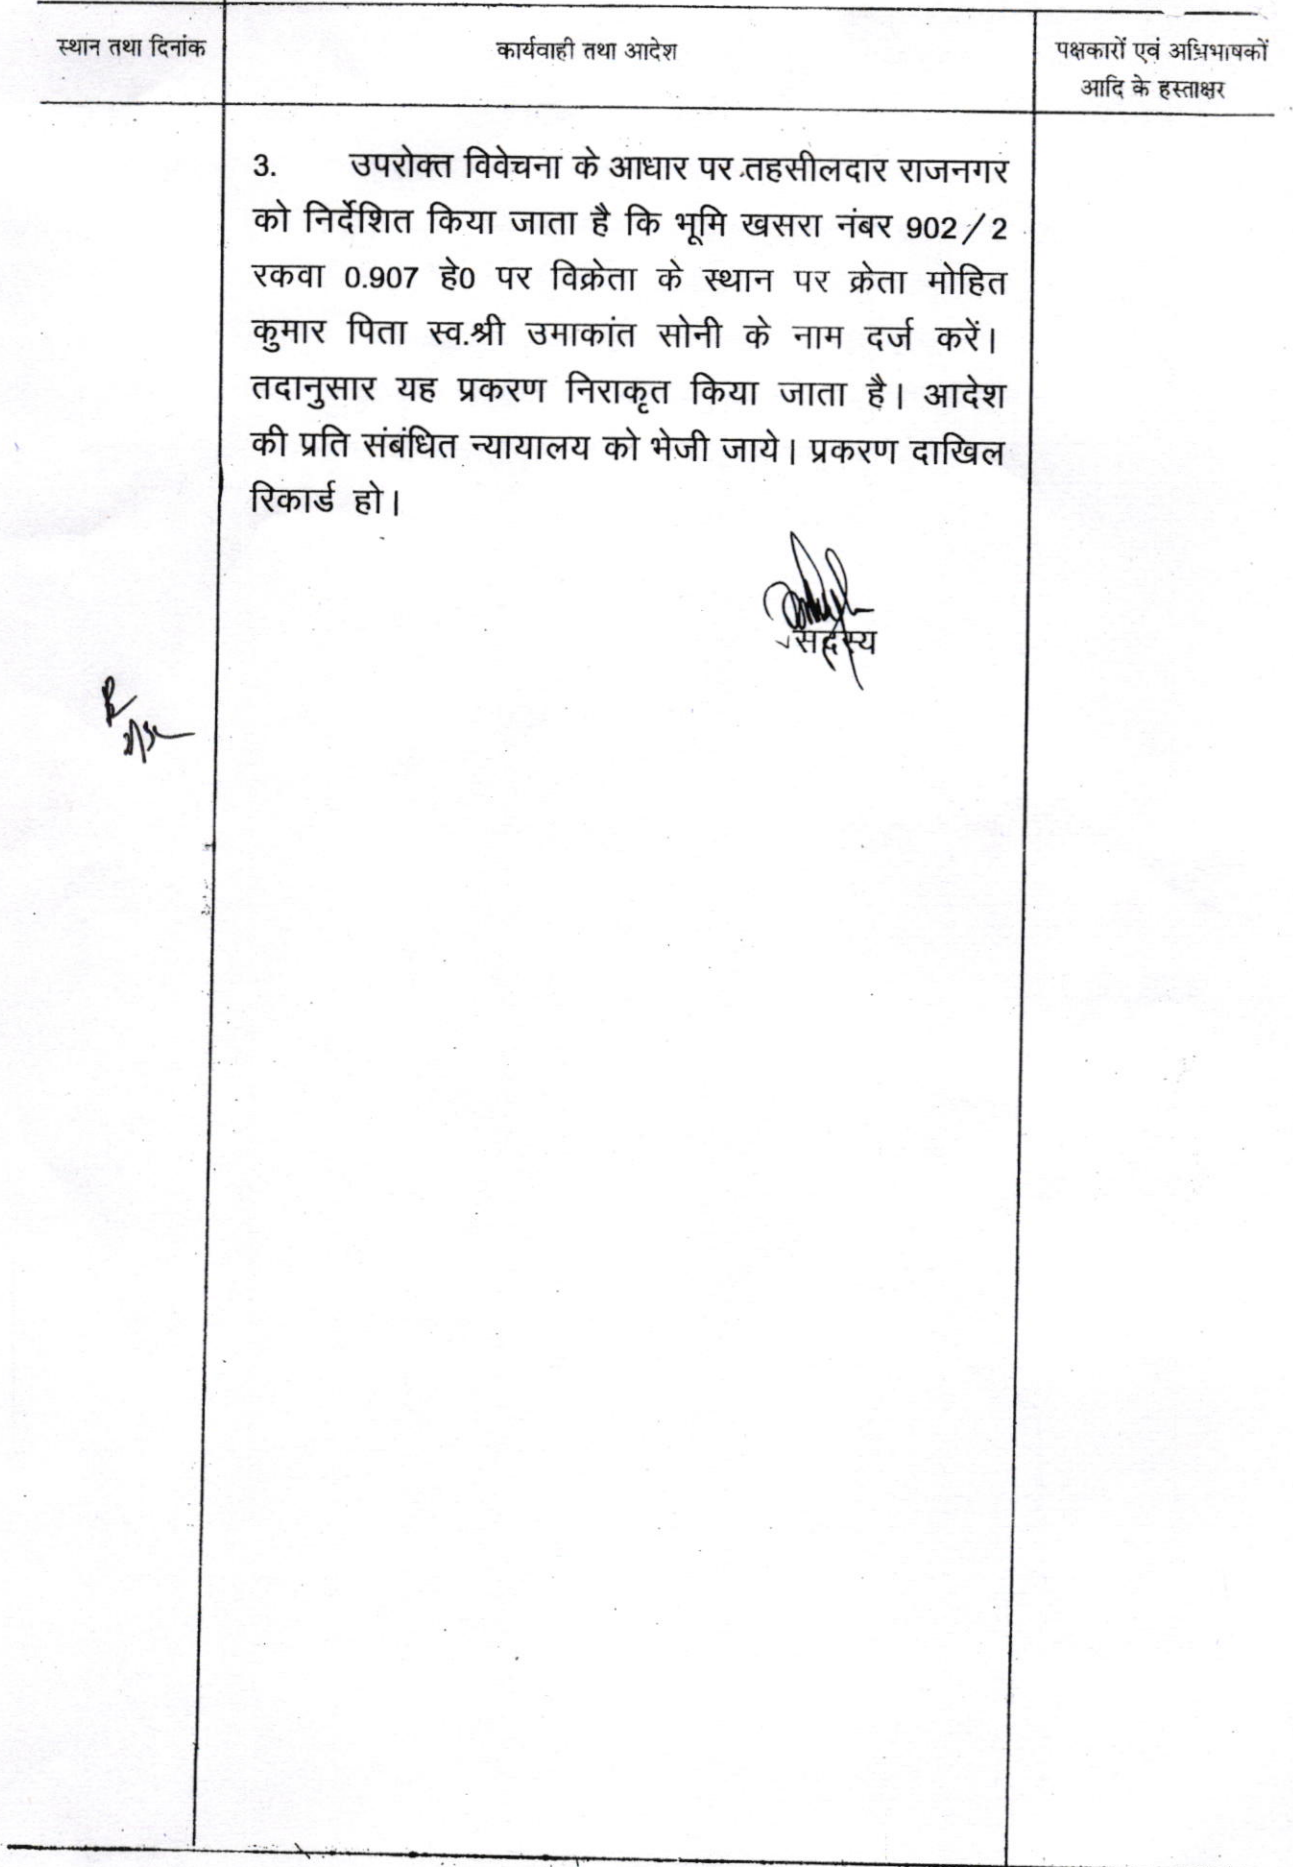 स्थान तथा दिनांक
कार्यवाही तथा आदेश
पक्षकारों एवं अभिभाषकों
आदि के हस्ताक्षर
3. उपरोक्त विवेचना के आधार पर तहसीलदार राजनगर
को निर्देशित किया जाता है कि भूमि खसरा नंबर 902/2
रकवा 0.907 हे0 पर विक्रेता के स्थान पर क्रेता मोहित
कुमार पिता स्व.श्री उमाकांत सोनी के नाम दर्ज करें।
तदानुसार यह प्रकरण निराकृत किया जाता है। आदेश
की प्रति संबंधित न्यायालय को भेजी जाये। प्रकरण दाखिल
रिकार्ड हो।
सदस्य